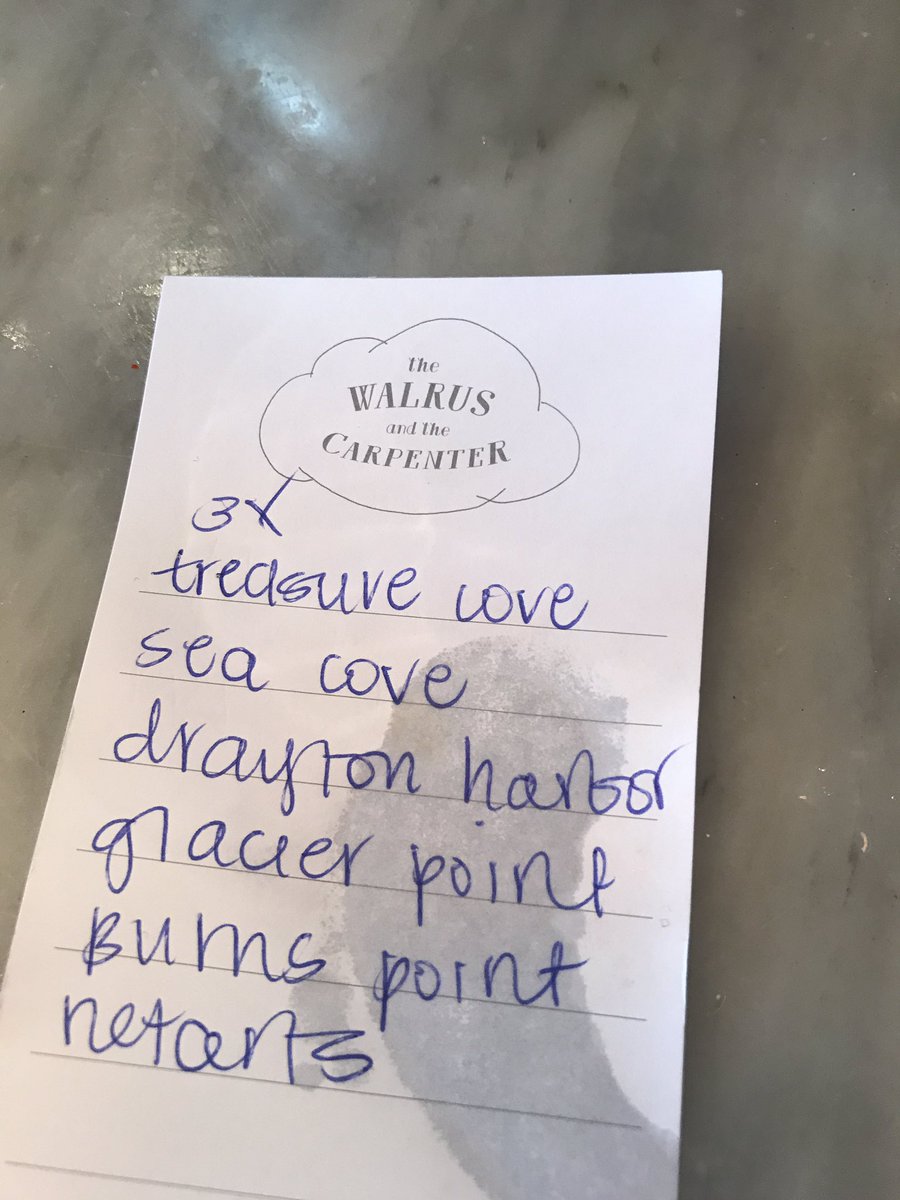 the
WALRUS
and the
CARPENTER
3x
treasure cove
sea cove
drayton harbor
glacier point
Burns point
netarts